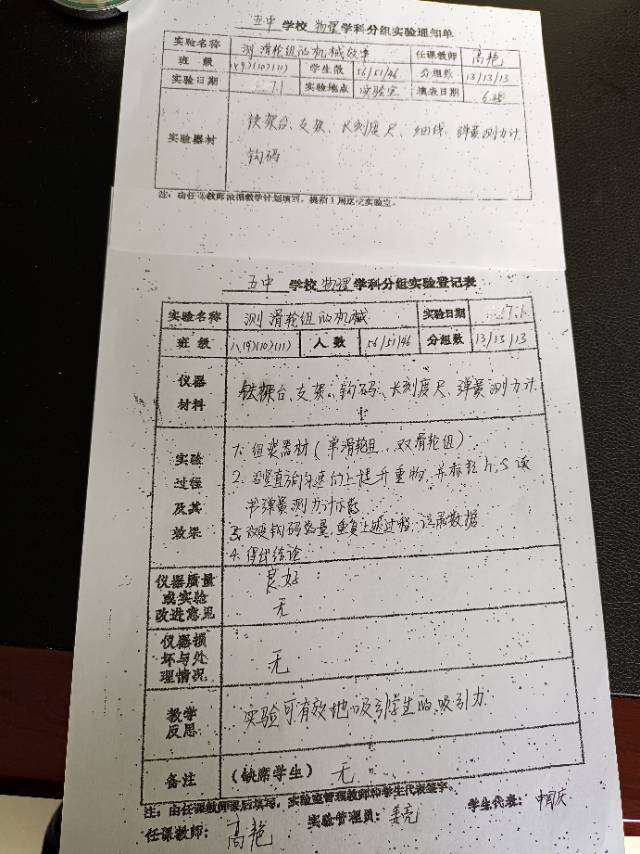 五中 学校 物理 学科分组实验通知单
实验名称 测滑轮组的机械效率 任课教师 高艳
班级 (9)(10)(11) 学生数 56/51/46 分组数 13/13/13
实验日期 7.1 实验地点 实验室 填表日期
实验器材 铁架台、支架、长刻度尺、细线、弹簧测力计
钩码
注：由任课教师根据教学计划填写，提前1周送交实验室。
五中 学校 物理 学科分组实验登记表
实验名称 测滑轮组的机械 实验日期 7.1
班级 八(9)(10)(11) 人数 56/51/46 分组数 13/13/13
仪器材料 铁架台、支架、钩码、长刻度尺、弹簧测力计
实验过程及其效果 1. 组装器材(单滑轮组、双滑轮组)
2. 竖直方向匀速向上提升重物，并标记h、S 读
出弹簧测力计示数
3. 改变钩码数量，重复上述过程，记录数据
4. 得出结论
仪器质量或实验改进意见 良好
无
仪器损坏与处理情况 无
教学反思 实验可有效地吸引学生的吸引力
备注 (缺席学生) 无
注：由任课教师课后填写，实验室管理教师和学生代表签字。
任课教师： 高艳 实验管理员： 学生代表：